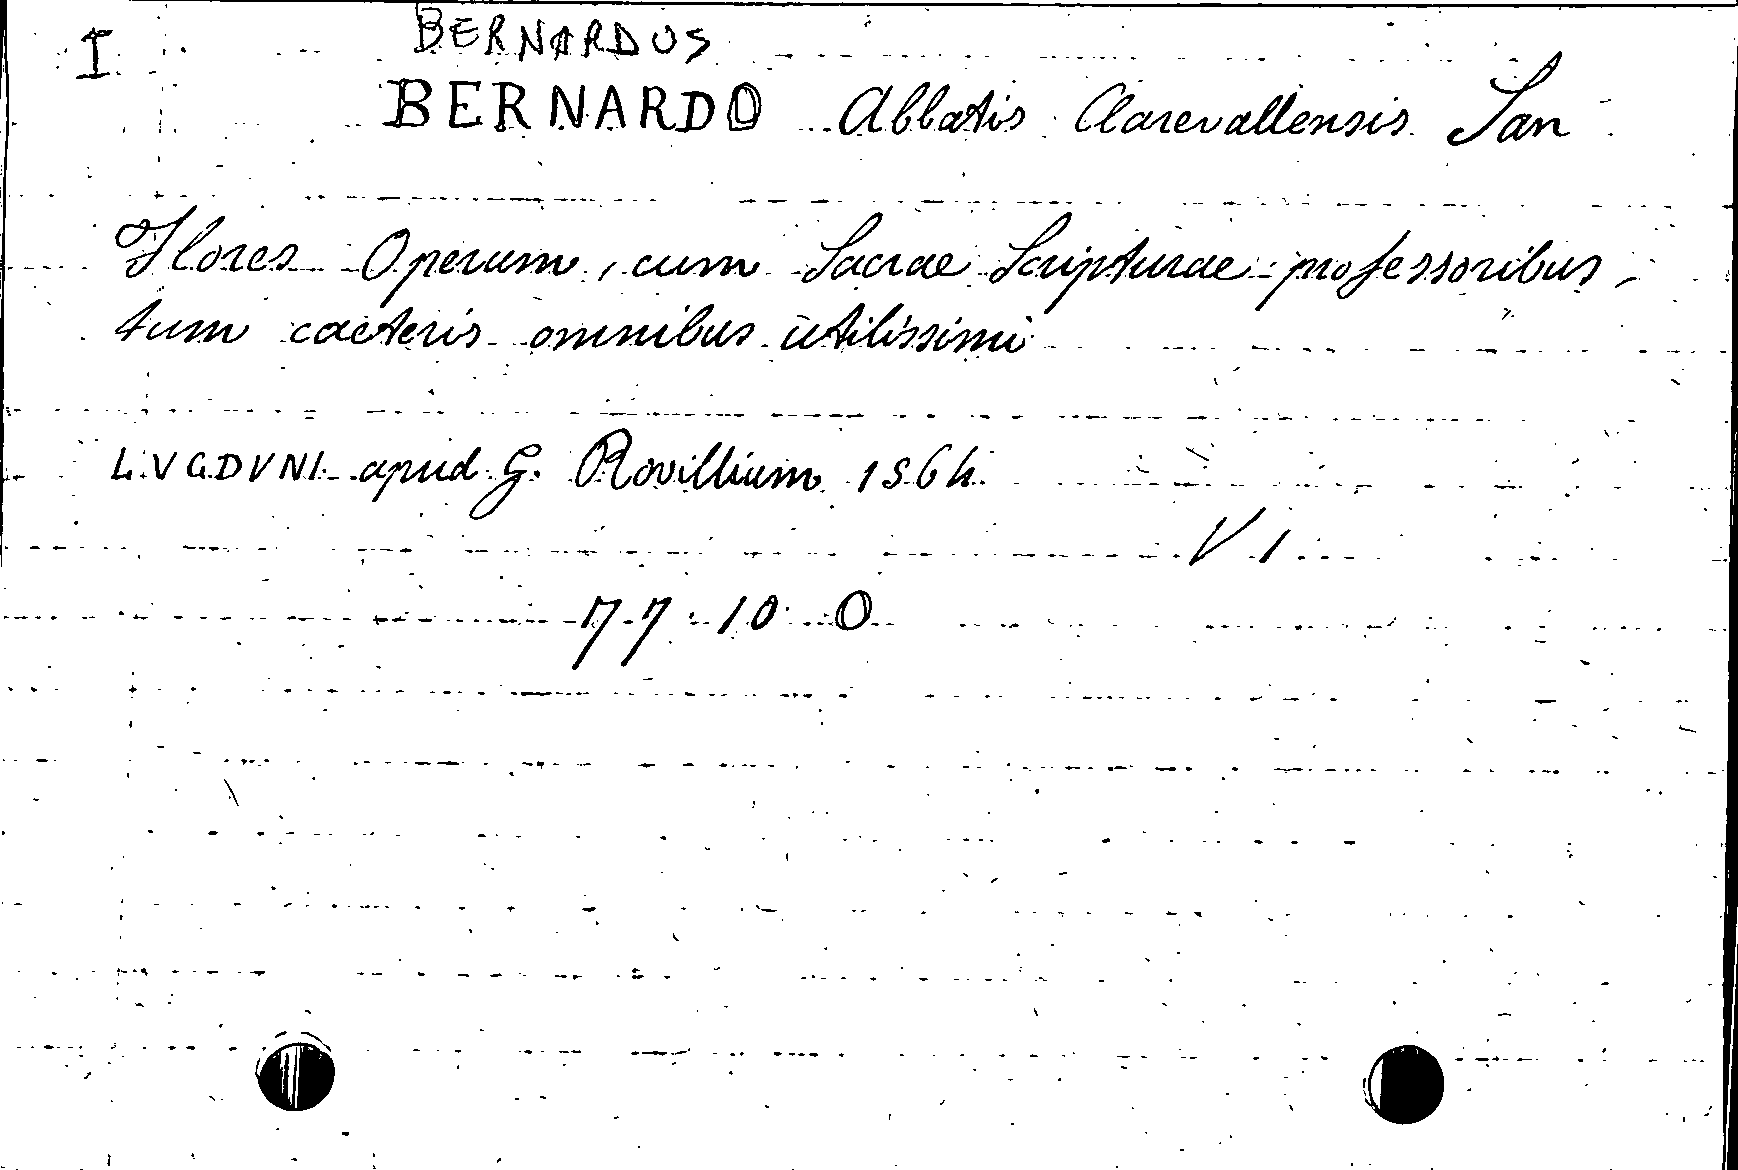 I
BERNARDUS
BERNARDO Abbatis Clarevallensis San
Flores Operum, cum Sacrae Scripturae professoribus,
tum caeteris omnibus utilissimi
LVGDVNI apud G. Rovillium 1564
V 1
77 10 O